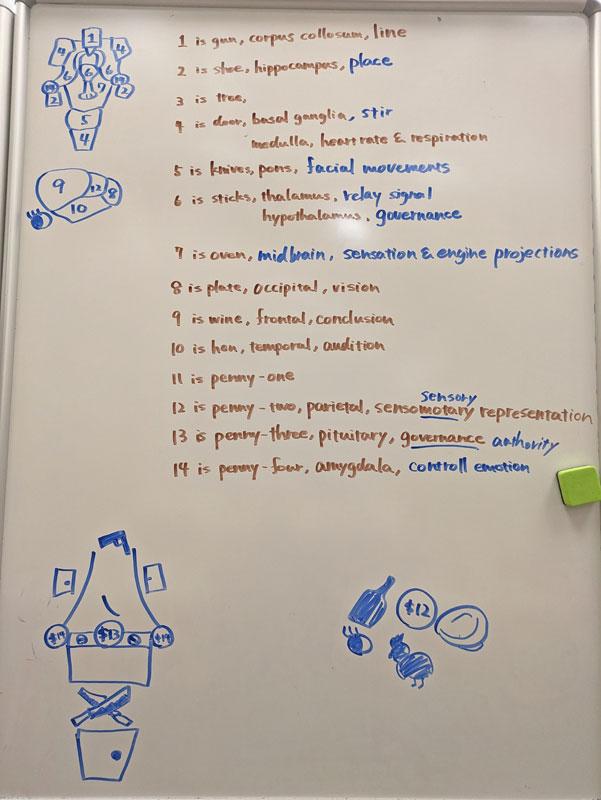 1 is gun, corpus collosum, line
2 is shoe, hippocampus, place
3 is tree,
4 is door, basal ganglia, stir
medulla, heart rate & respiration
5 is knives, pons, facial movements
6 is sticks, thalamus, relay signal
hypothalamus, governance
7 is oven, midbrain, sensation & engine projections
8 is plate, occipital, vision
9 is wine, frontal, conclusion
10 is hen, temporal, audition
11 is penny-one
sensory
12 is penny-two, parietal, sensomotary representation
13 is penny-three, pituitary, governance authority
14 is penny-four, amygdala, controll emotion
1
4 4
6 6 6
14 7 14
2 2
5
4
9 12 8
10
$14 $13 $14
$12